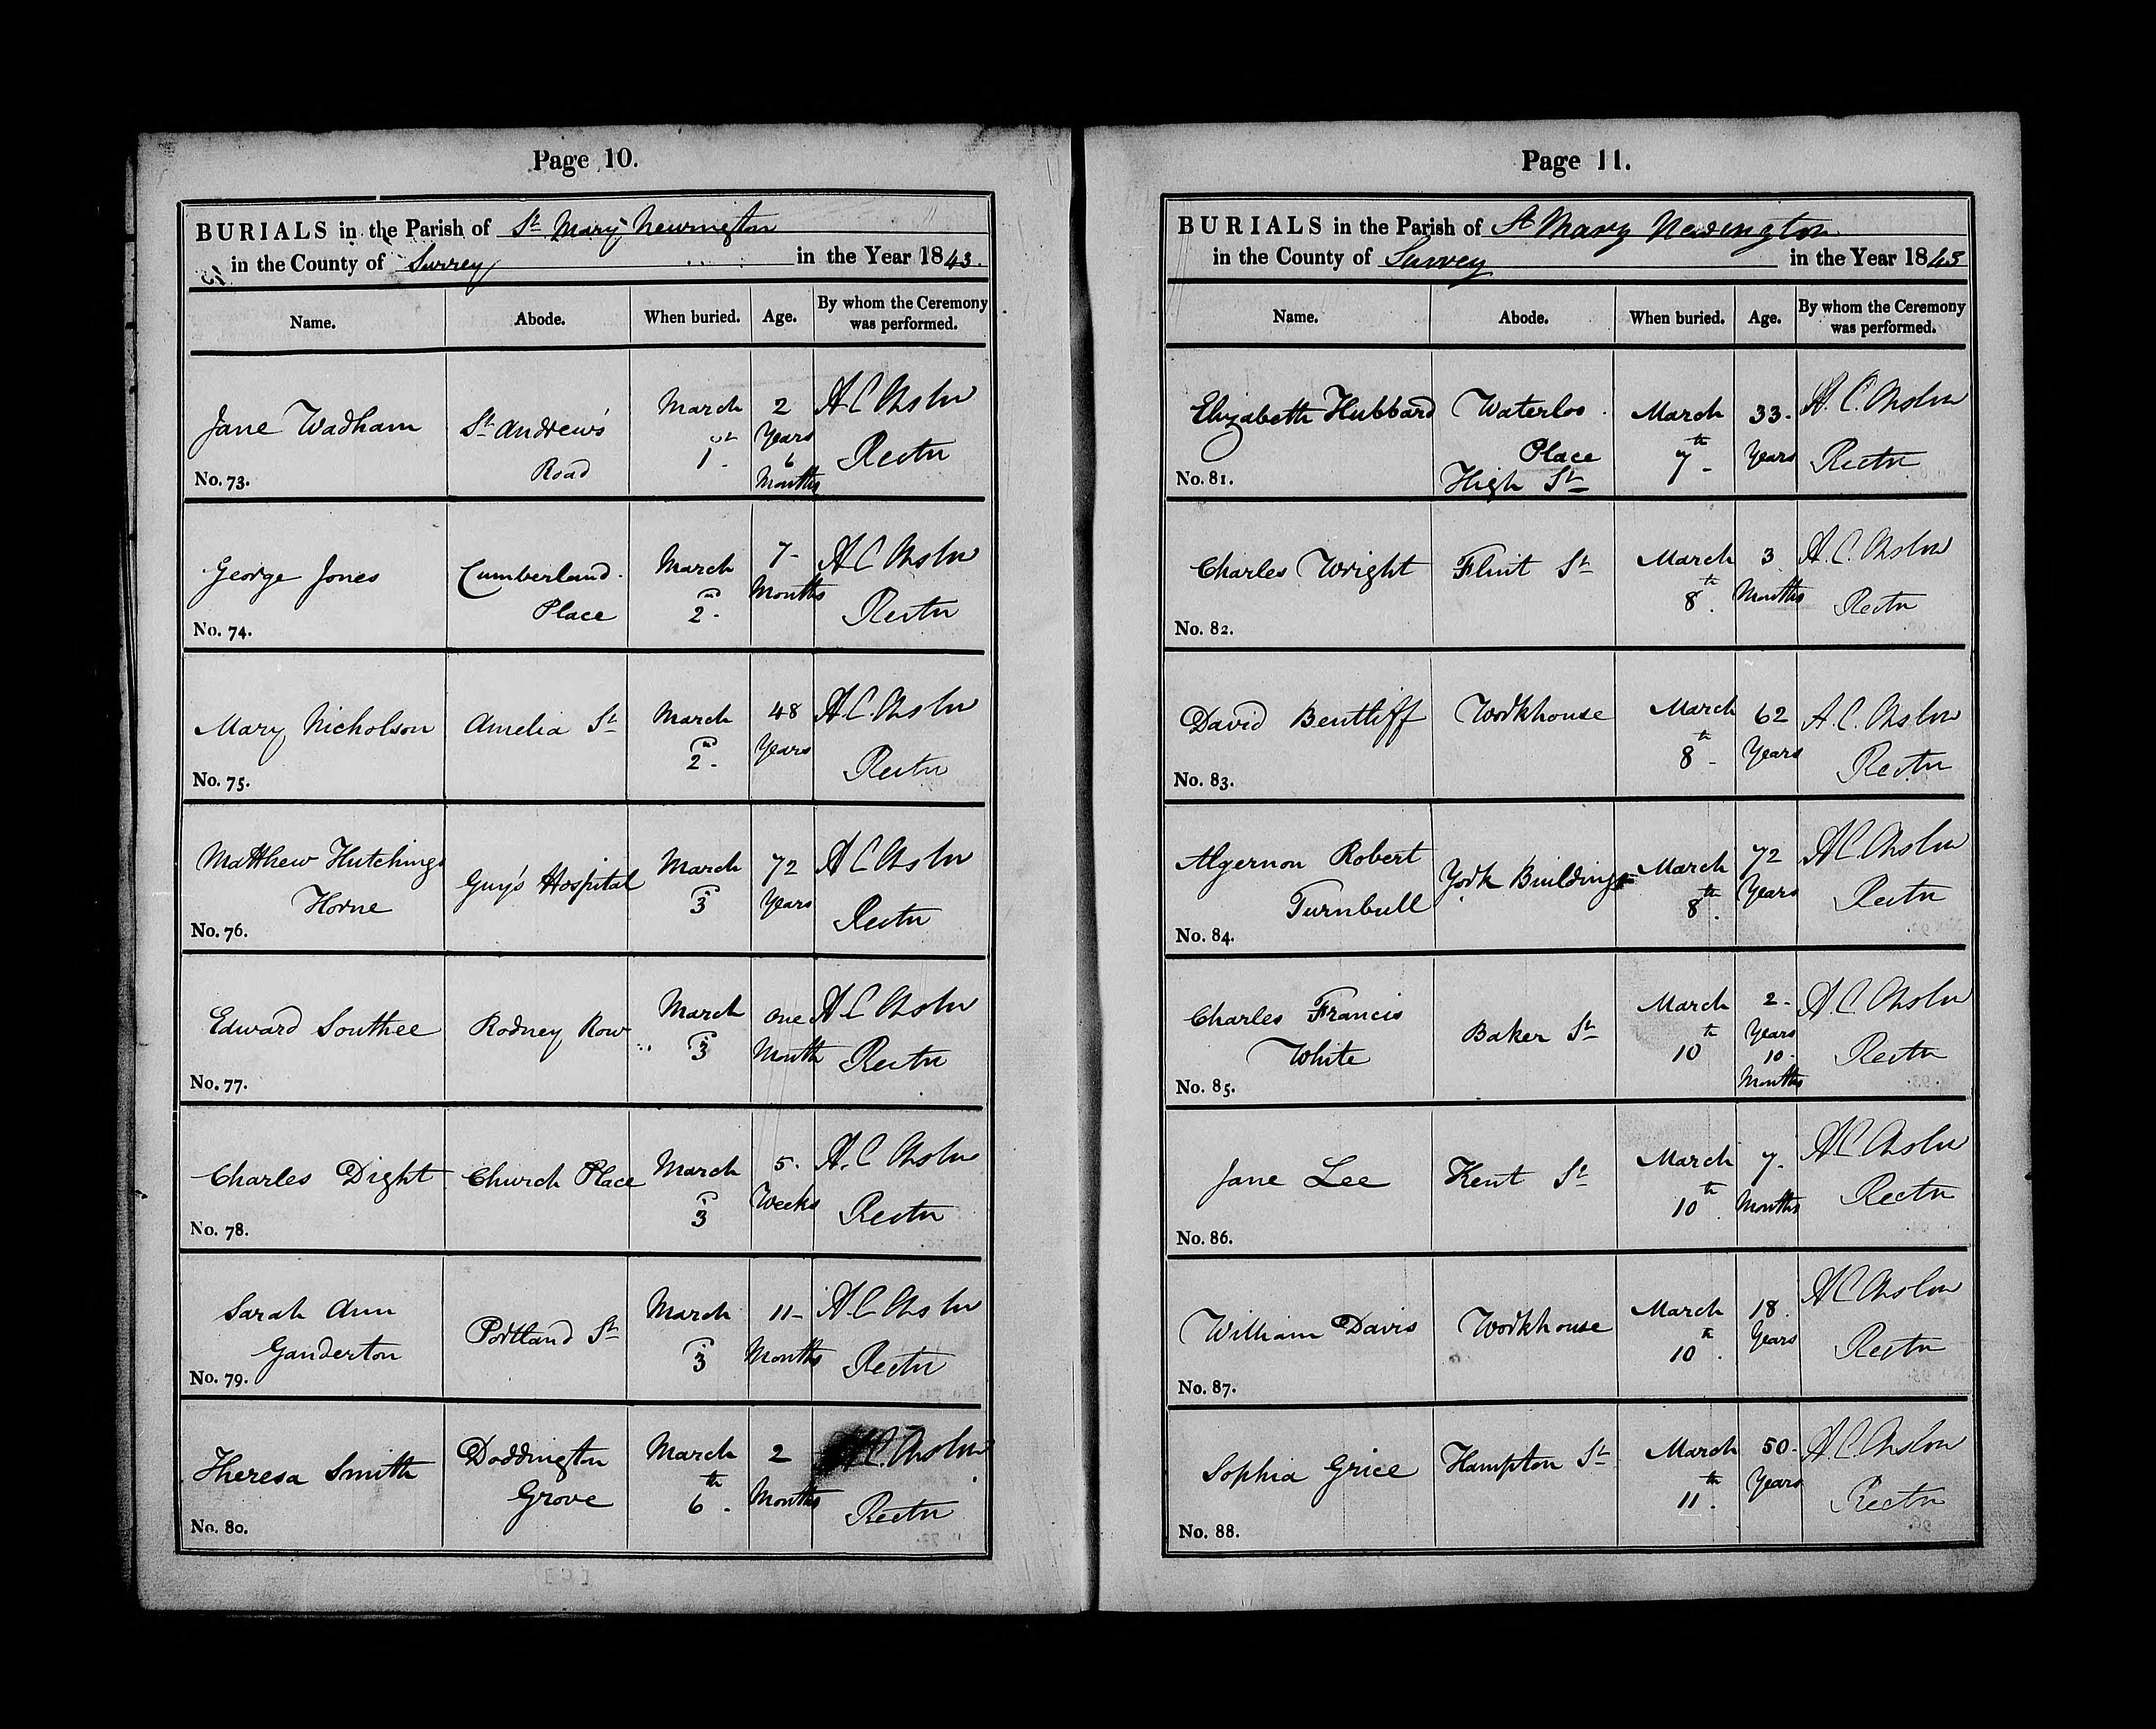 Page 10.
BURIALS in the Parish of St Mary Newington
in the County of Surrey in the Year 1843.
Name. Abode. When buried. Age. By whom the Ceremony was performed.
Jane Wadham St Andrew's March 2 A C Onslow
Road 1st Years Rector
6
No. 73. Months
George Jones Cumberland March 7 A C Onslow
Place 2d Months Rector
No. 74.
Mary Nicholson Amelia St March 48 A C Onslow
2d Years Rector
No. 75.
Matthew Hutchings Guy's Hospital March 72 A C Onslow
Horne 3d Years Rector
No. 76.
Edward Southee Rodney Row March one A C Onslow
3d Month Rector
No. 77.
Charles Dight Church Place March 5 A. C Onslow
3d Weeks Rector
No. 78.
Sarah Ann Portland St March 11 A C Onslow
Ganderton 3d Months Rector
No. 79.
Theresa Smith Doddington March 2 A C. Onslow
Grove 6th Months Rector
No. 80.
Page 11.
BURIALS in the Parish of St Mary Newington
in the County of Surrey in the Year 1843
Name. Abode. When buried. Age. By whom the Ceremony was performed.
Elizabeth Hubbard Waterloo March 33 A. C. Onslow
Place 7th Years Rector
No. 81. High St
Charles Wright Flint St March 3 A. C. Onslow
8th Months Rector
No. 82.
David Bentliff Workhouse March 62 A. C. Onslow
8th Years Rector
No. 83.
Algernon Robert York Buildings March 72 A C Onslow
Turnbull 8th Years Rector
No. 84.
Charles Francis Baker St March 2 A. C Onslow
White 10th Years Rector
10
No. 85. Months
Jane Lee Kent St March 7 A C Onslow
10th Months Rector
No. 86.
William Davis Workhouse March 18 A C Onslow
10th Years Rector
No. 87.
Sophia Grice Hampton St March 50 A C Onslow
11th Years Rector
No. 88.